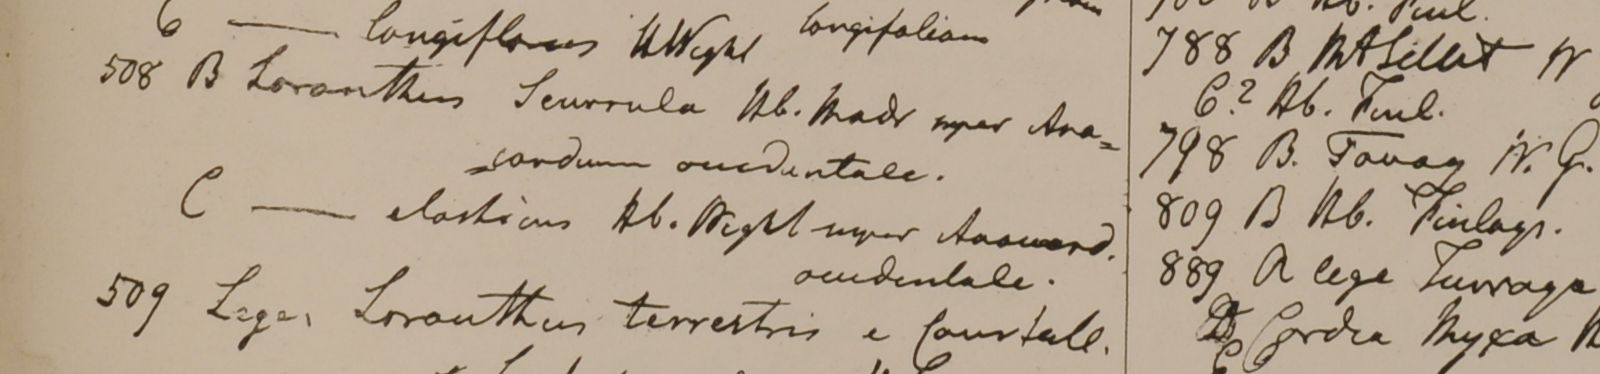 C — longiflorus H Wight longifolium
508 B Loranthus Scurrula Hb. Madr super Ana=
=cardium occidentale.
C — elasticus Hb. Wight super Anacard.
occidentale.
509 Lege, Loranthus terrestris e Courtall.
788 B Mt Sillet W
C? Hb. Finl.
798 B. Tavoy W. G.
809 B Hb. Finlays.
889 A lege Turraga
Cordia Myxa